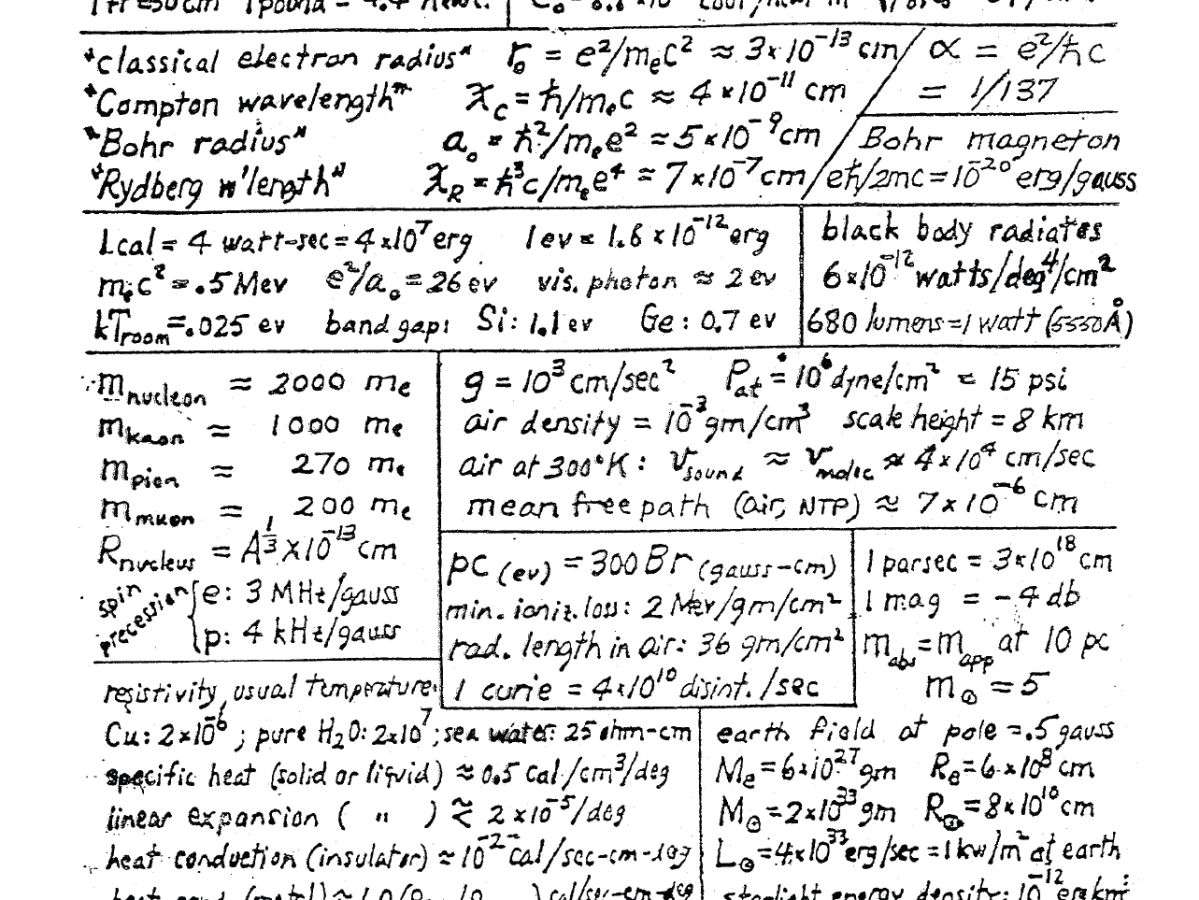 1 pound =
"classical electron radius" r₀ = e²/mₑc² ≈ 3×10⁻¹³ cm
α = e²/ħc
= 1/137
"Compton wavelength" ƛ_C = ħ/mₑc ≈ 4×10⁻¹¹ cm
"Bohr radius" a₀ = ħ²/mₑe² ≈ 5×10⁻⁹ cm
"Rydberg w'length" ƛ_R = ħ³c/mₑe⁴ ≈ 7×10⁻⁷ cm
Bohr magneton
eħ/2mc = 10⁻²⁰ erg/gauss
1 cal = 4 watt-sec = 4×10⁷ erg 1 ev = 1.6×10⁻¹² erg
mₑc² = .5 Mev e²/a₀ = 26 ev vis. photon ≈ 2 ev
kT_room = .025 ev band gap: Si: 1.1 ev Ge: 0.7 ev
black body radiates
6×10⁻¹² watts/deg⁴/cm²
680 lumens = 1 watt (5550Å)
m_nucleon ≈ 2000 mₑ
m_kaon ≈ 1000 mₑ
m_pion ≈ 270 mₑ
m_muon ≈ 200 mₑ
R_nucleus = A^⅓ × 10⁻¹³ cm
spin precession { e: 3 MHz/gauss
p: 4 kHz/gauss
g = 10³ cm/sec² P_at = 10⁶ dyne/cm² = 15 psi
air density = 10⁻³ gm/cm³ scale height = 8 km
air at 300°K: v_sound ≈ v_molec ≈ 4×10⁴ cm/sec
mean free path (air, NTP) ≈ 7×10⁻⁶ cm
pc (ev) = 300 Br (gauss-cm)
min. ioniz. loss: 2 Mev/gm/cm²
rad. length in air: 36 gm/cm²
1 curie = 4×10¹⁰ disint./sec
1 parsec = 3×10¹⁸ cm
1 mag = -4 db
m_abs = m_app at 10 pc
m_⊙ = 5
resistivity, usual temperature
Cu: 2×10⁻⁶; pure H₂O: 2×10⁷; sea water: 25 ohm-cm
specific heat (solid or liquid) ≈ 0.5 cal/cm³/deg
linear expansion ( " ) ≳ 2×10⁻⁵/deg
heat conduction (insulator) ≈ 10⁻² cal/sec-cm-deg
cal/sec-cm-deg
earth field at pole = .5 gauss
Mₑ = 6×10²⁷ gm Rₑ = 6×10⁸ cm
M_⊙ = 2×10³³ gm R_⊙ = 8×10¹⁰ cm
L_⊙ = 4×10³³ erg/sec = 1 kw/m² at earth
starlight energy density: 10⁻¹²